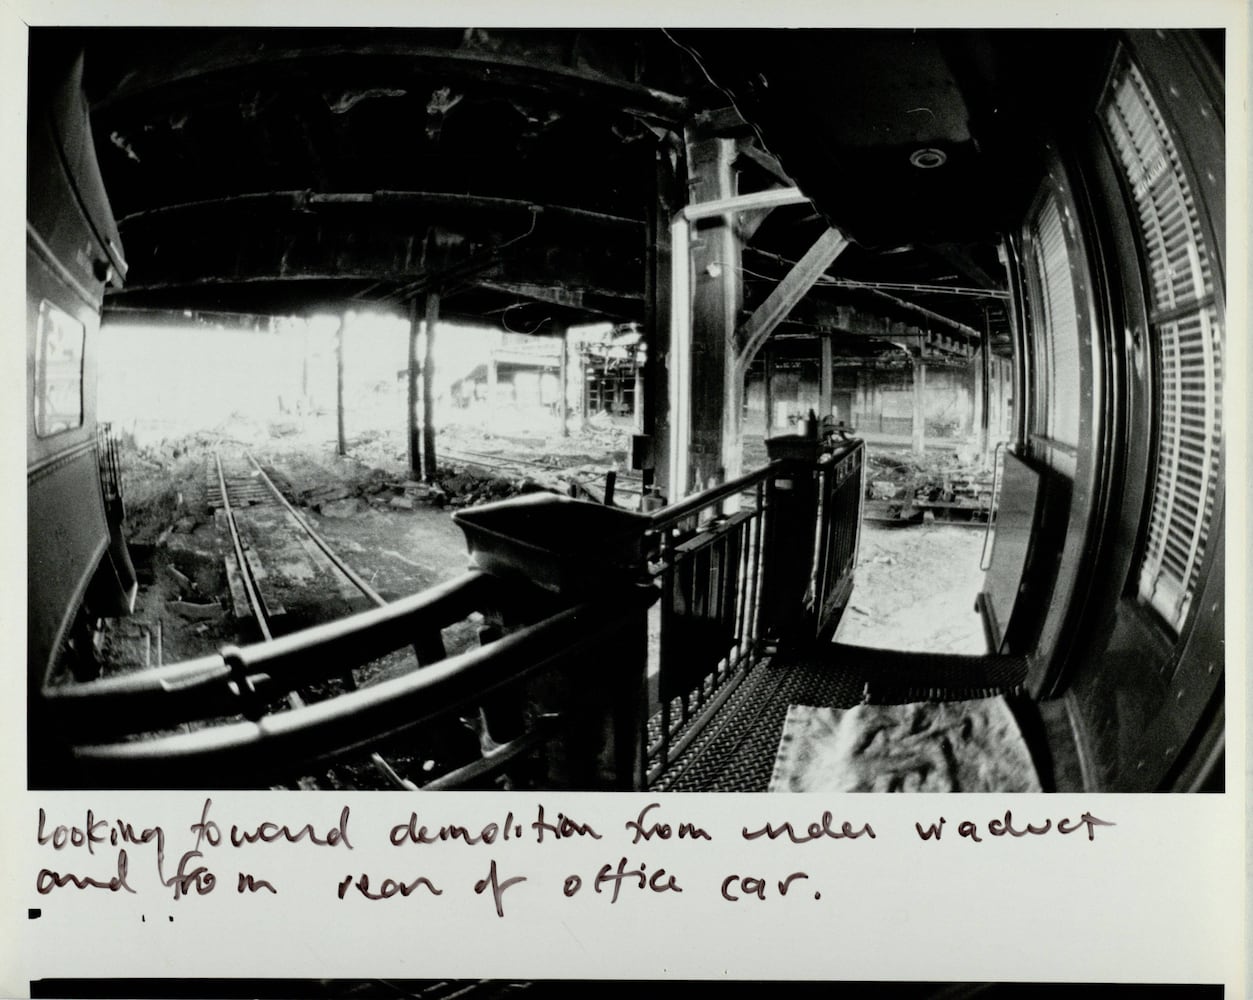 looking toward demolition from under viaduct
and from rear of office car.